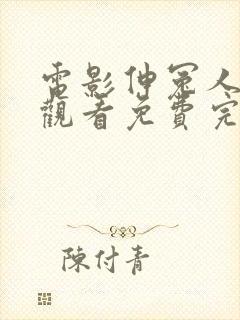 電影伸冤人
觀看免費完
陳付青